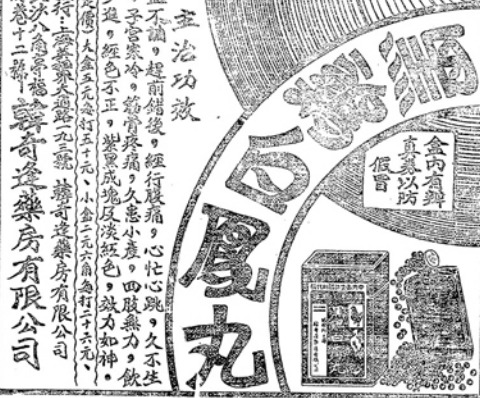 白鳳丸
盒內有辨
真券以防
假冒
主治功效
不調，超前錯後，經行腹痛，心忙心跳，久不生
子宮寒冷，筋骨疼痛，久患小產，四肢無力，飲
進，經色不正，紫黑成塊及淡紅色，效力如神。
價）大盒五元每打五十元、小盒二元六角每打二十六元、
行：大通路一九三號 韓奇逢藥房有限公司
沙八角亭福
巷十二號
韓奇逢藥房有限公司